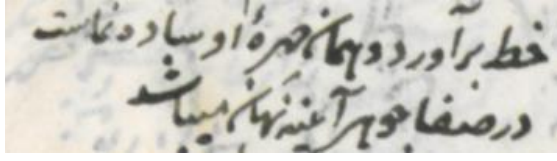 خط برآورد و همان چهرهٔ او ساده نماست
در صفا جوهر آئینه نهان میباشد